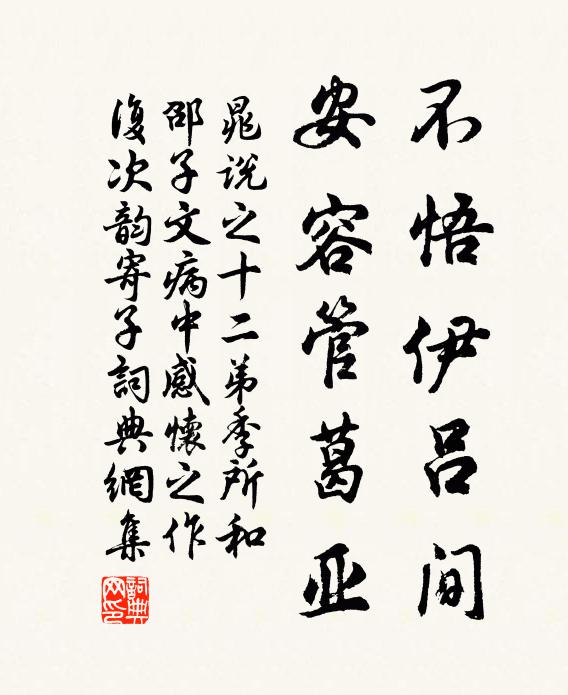 不悟伊吕间
安容管葛亚
晁说之十二弟季所和
邵子文病中感怀之作
復次韵寄子詞典網集
詞典網印